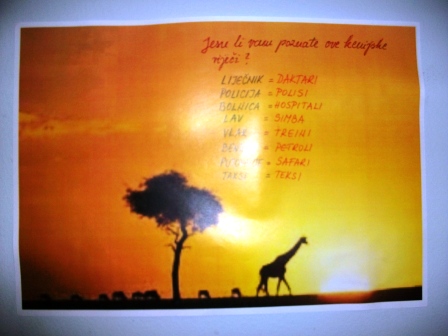 Jesu li vam poznate ove kenijske
riječi?
LIJEČNIK = DAKTARI
POLICIJA = POLISI
BOLNICA = HOSPITALI
LAV = SIMBA
= TREINI
= PETROLI
= SAFARI
= TEKSI